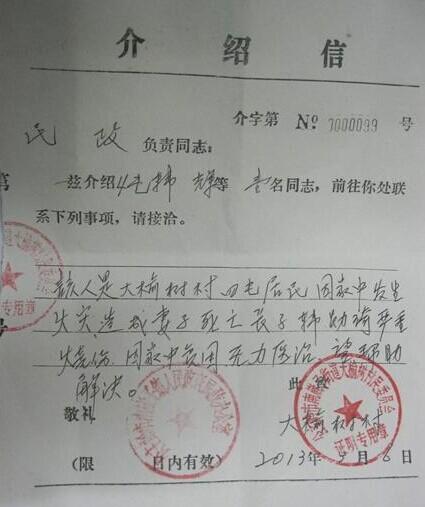 介 绍 信
介字第 № 0000099 号
民 政 负责同志：
兹介绍 等 壹名同志，前往你处联
系下列事项，请接洽。
该人是大榆树村四屯居民因家中发生
火灾造成妻子死亡长子韩勋琦严重
烧伤，因家中贫困无力医治，请帮助
解决。
此 致
敬礼
大榆树村
（限 日内有效） 2013年5月6日
证明专用章
专用章